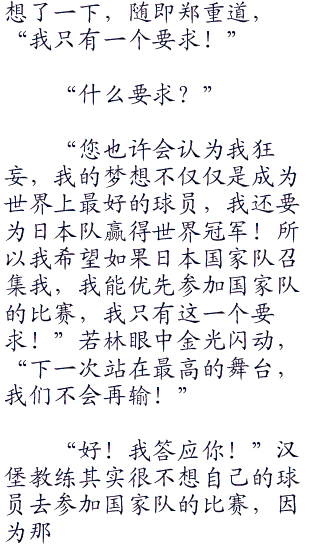 想了一下，随即郑重道，
“我只有一个要求！”
“什么要求？”
“您也许会认为我狂
妄，我的梦想不仅仅是成为
世界上最好的球员，我还要
为日本队赢得世界冠军！所
以我希望如果日本国家队召
集我，我能优先参加国家队
的比赛，我只有这一个要
求！”若林眼中金光闪动，
“下一次站在最高的舞台，
我们不会再输！”
“好！我答应你！”汉
堡教练其实很不想自己的球
员去参加国家队的比赛，因
为那